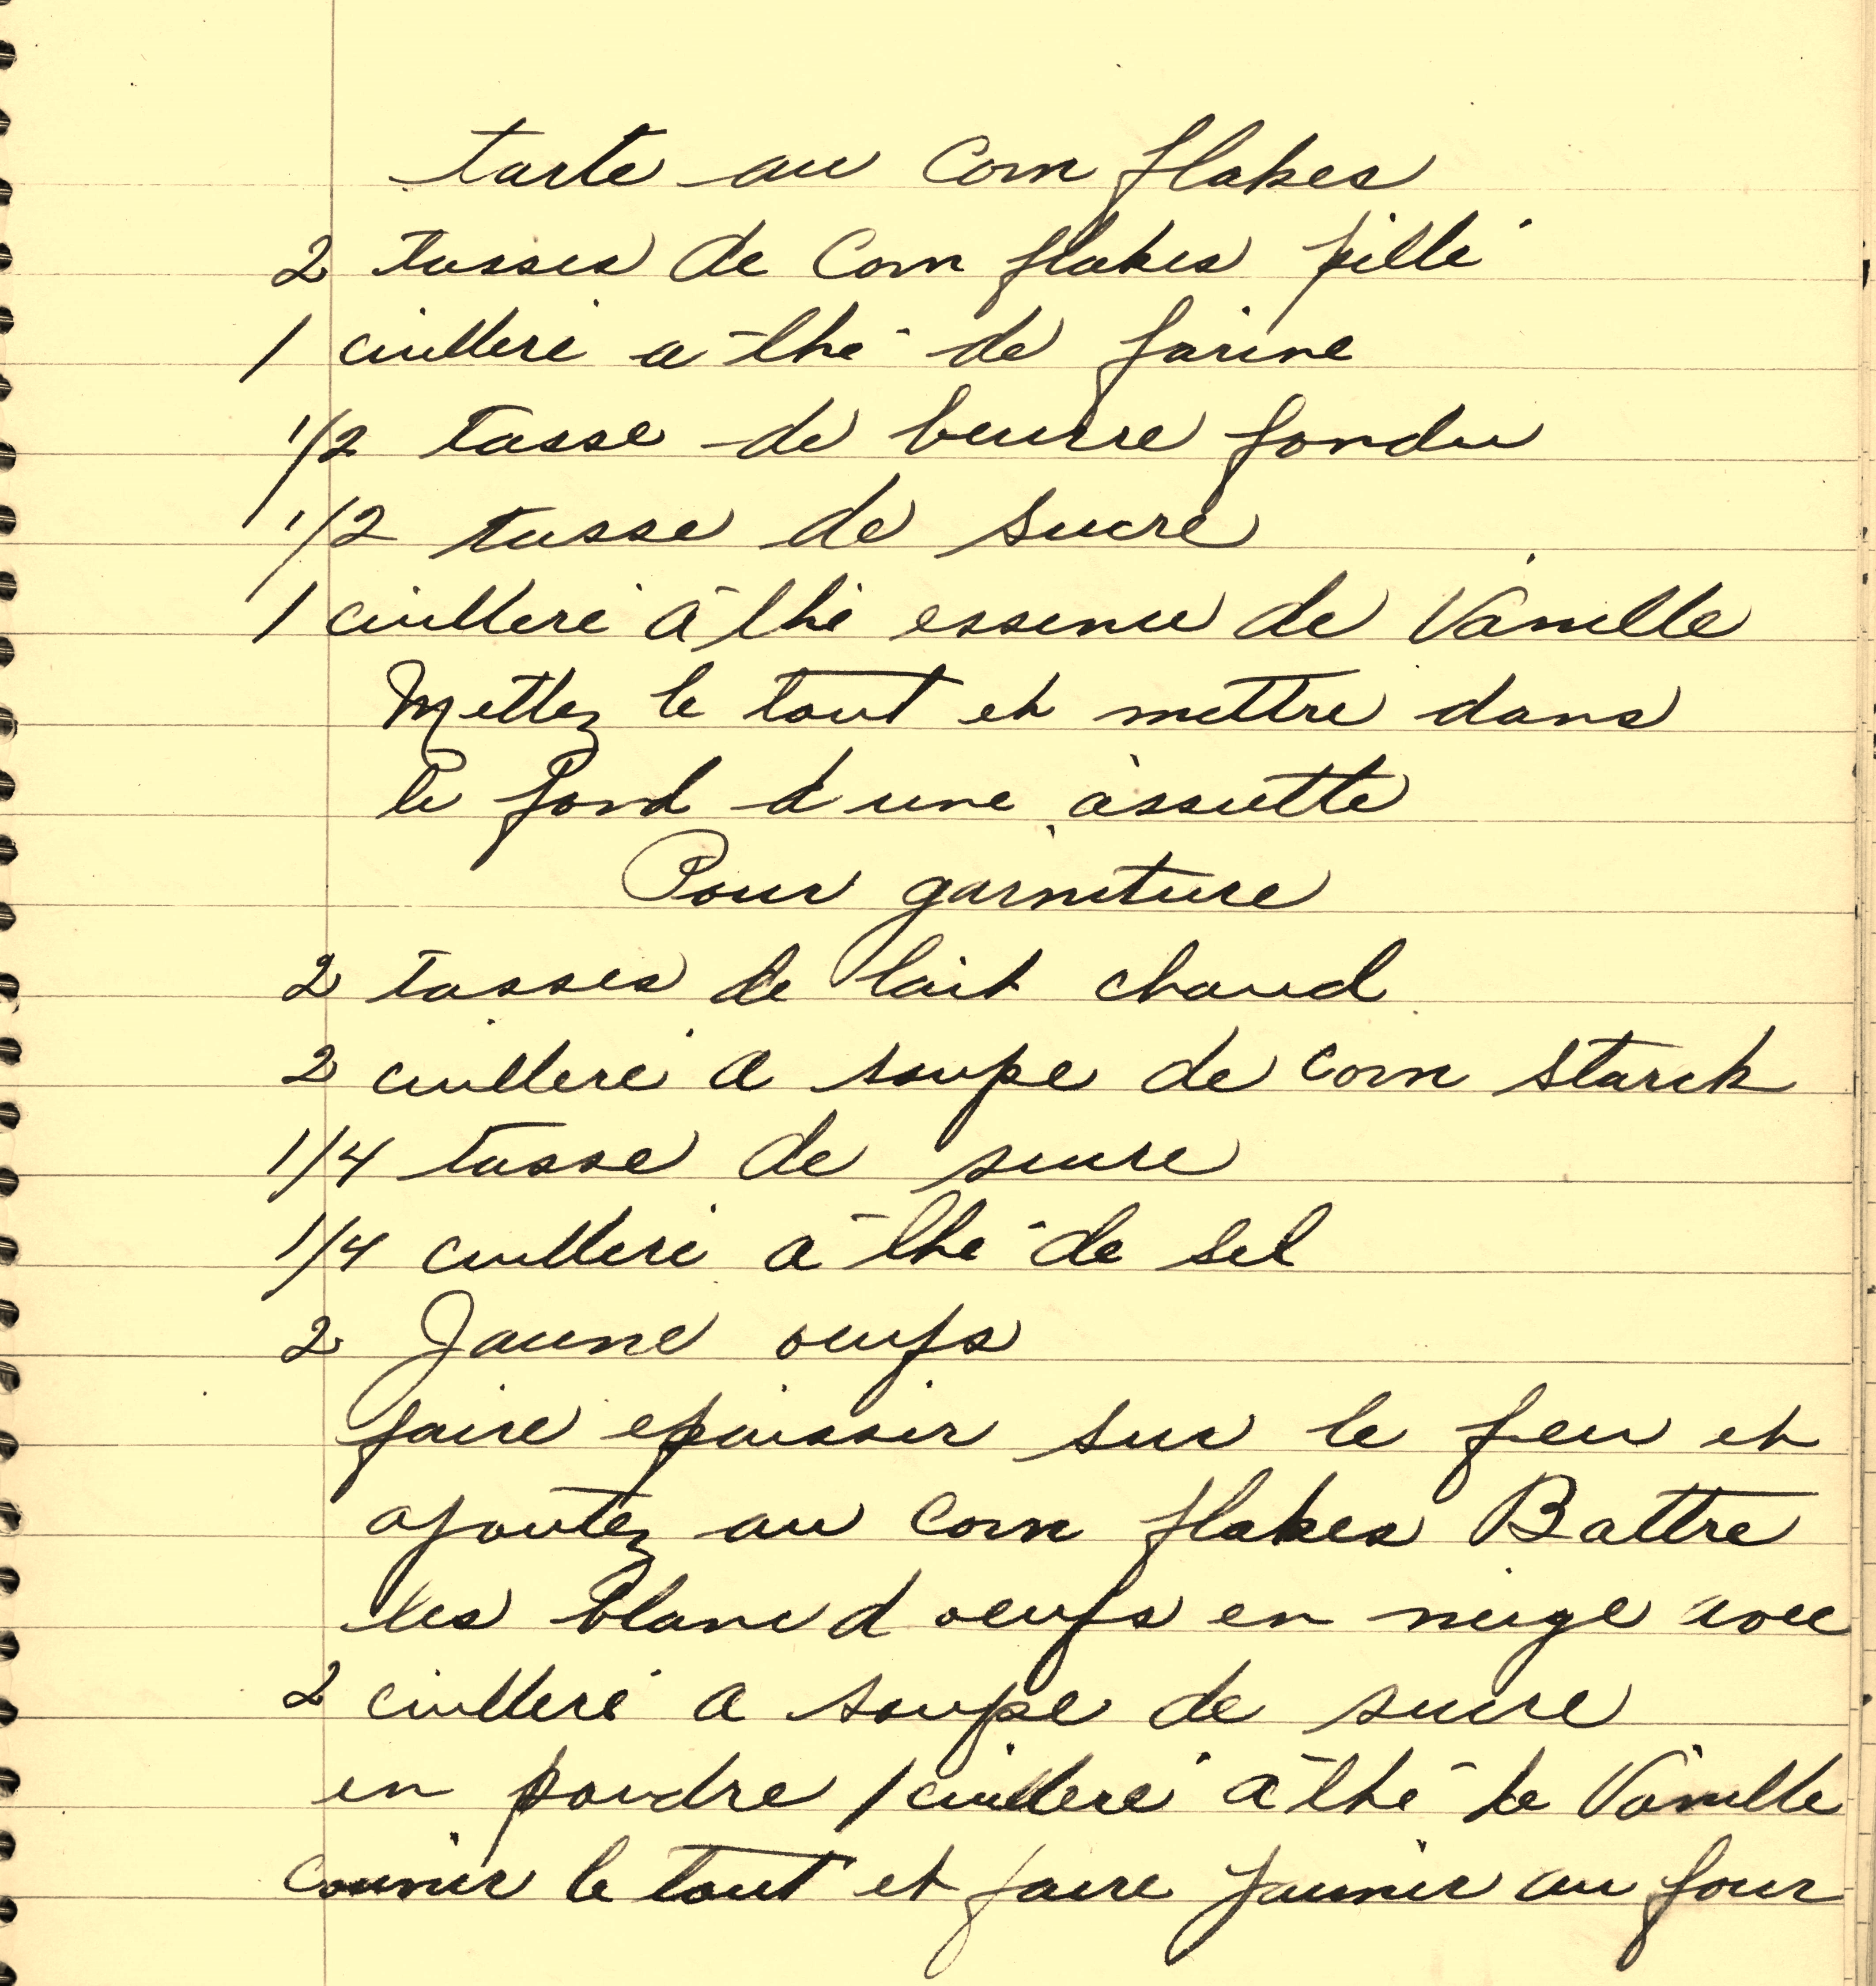 tarte au Corn flakes
2 tasses de Corn flakes pillé
1 cuilleré a thé de farine
1/2 tasse de beurre fondu
1/2 tasse de sucre
1 cuilleré à thé essence de Vanille
Mettez le tout et mettre dans
le fond d une assiette
Pour garniture
2 tasses de lait chaud
2 cuilleré a soupe de corn starch
1/4 tasse de sucre
1/4 cuilleré a thé de sel
2 Jaune oeufs
faire epaissir sur le feu et
ajoutez au Corn flakes Battre
les blanc d oeufs en neige avec
2 cuilleré a soupe de sucre
en poudre 1 cuilleré à thé de Vanille
couvrir le tout et faire jaunir au four